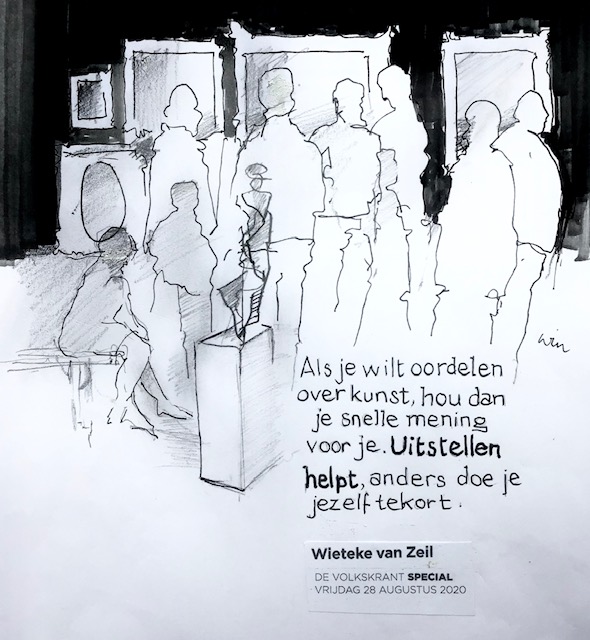 win
Als je wilt oordelen
over kunst, hou dan
je snelle mening
voor je. Uitstellen
helpt, anders doe je
jezelf tekort.
Wieteke van Zeil
DE VOLKSKRANT SPECIAL
VRIJDAG 28 AUGUSTUS 2020